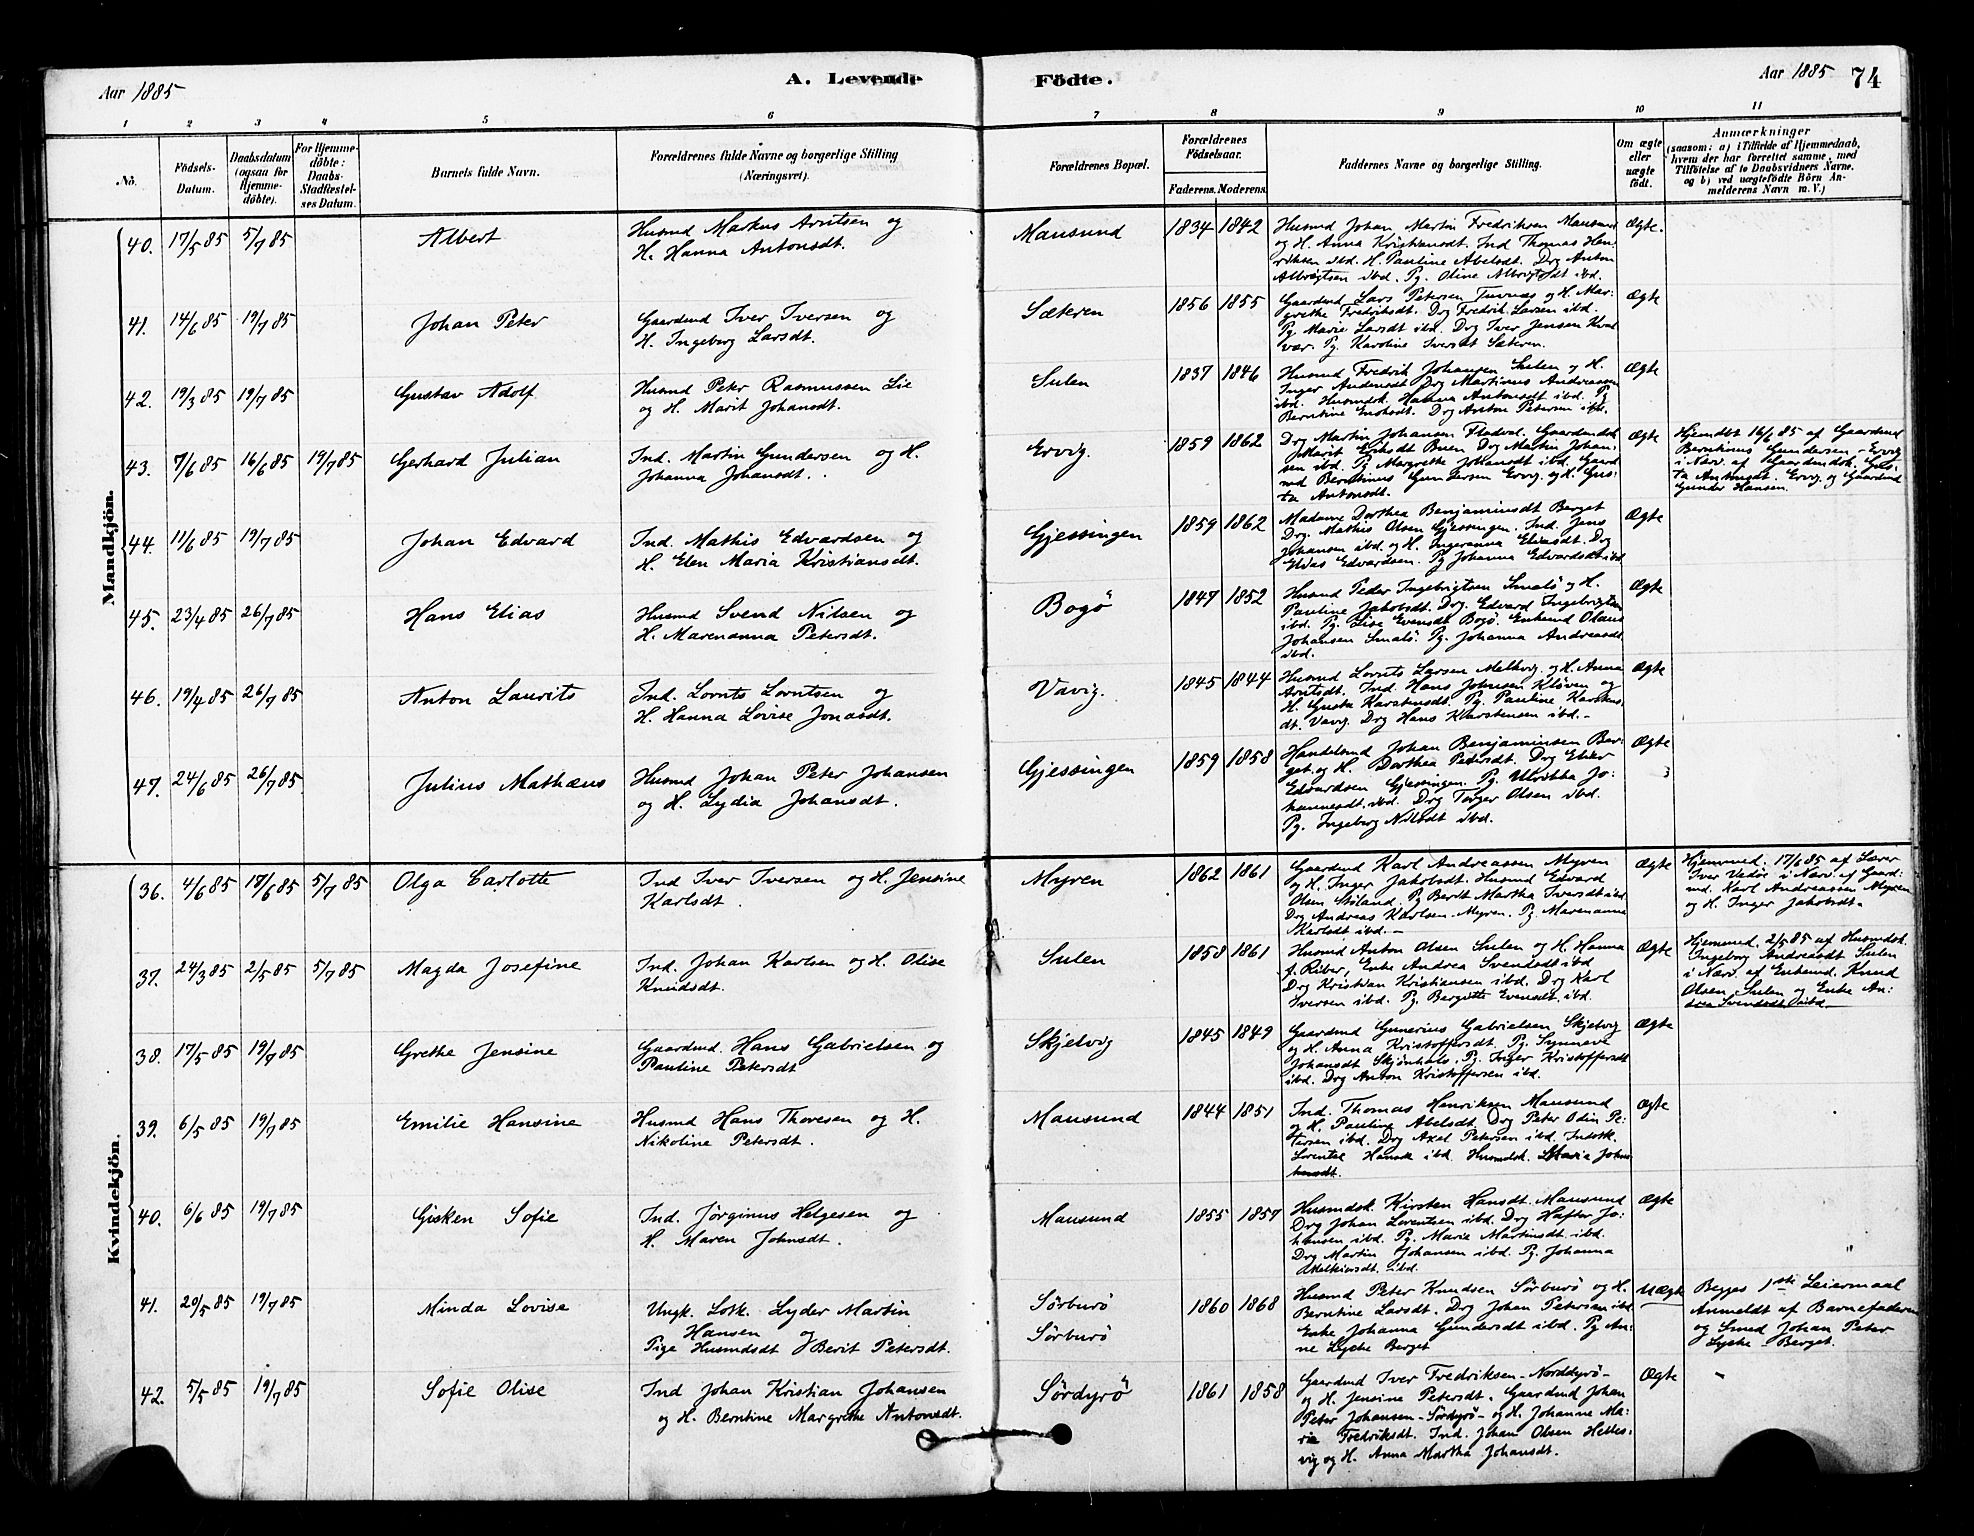 Aar 1885
A. Levende
Födte.
Aar 1885
74
1 2 3 4 5 6 7 8 9 10 11
No.
Födsels-
Datum.
Daabsdatum
(ogsaa for
Hjemme-
døbte).
For Hjemme-
døbte:
Daabs-
Stadfæstel-
ses Datum.
Barnets fulde Navn.
Forældrenes fulde Navne og borgerlige Stilling
(Næringsvei).
Forældrenes Bopæl.
Forældrenes
Födselsaar.
Faderens. Moderens.
Faddernes Navne og borgerlige Stilling.
Om ægte
eller
uægte
født.
Anmærkninger
(saasom: a) i Tilfælde af Hjemmedaab,
hvem der har forrettet samme, med
Tilføielse af to Daabsvidners Navne,
og b) ved uægtefödte Börn An-
melderens Navn m. V.)
Mandkjön.
40. 17/5 85 5/7 85
Albert
Husmd Markus Arntsen og
H. Hanna Antonsdt.
Mausund
1834 1842
Husmd Johan Martin Fredriksen Mausund
og H. Anna Kristiansdt. Ind Thomas Hen-
riksen ibd. H. Pauline Abelsdt. Drg Anton
Albrigtsen ibd. Pg. Oline Albrigtsdt ibd.
Ægte.
41. 14/6 85 19/7 85
Johan Peter
Gaardmd Iver Iversen og
H. Ingeborg Larsdt.
Sæteren
1856 1855
Gaardmd Lars Petersen Tuvnæs og H. Mar-
grethe Fredriksdt. Drg Fredrik Larsen ibd.
Pg. Marie Larsdt ibd. Drg Iver Jensen Kval
vær. Pg. Karoline Iversdt Sæteren.
Ægte
42. 19/3 85 19/7 85
Gustav Adolf
Husmd Peter Rasmussen Lie
og H. Marit Johansdt.
Sulen
1837 1846
Husmd Fredrik Johansen Sulen og H.
Inger Andersdt Drg Martinus Andreasen
ibd. Husmdsk. Hanna Antonsdt ibd. Pg
Berntine Drg Anton Petersen ibd.
Ægte
43. 7/6 85 16/6 85 19/7 85
Gerhard Julian
Ind. Martin Gundersen og H.
Johanna Johansdt.
Ervig.
1859 1862
Drg Martin Johansen Fladval. Gaardmdsk
Marit Eriksdt Buen Drg Martin Johan-
sen ibd. Pg Margrethe Johansdt ibd. Gaard
md Berntinus Gundersen Ervig og H. Gus-
ta Antonsdt.
Ægte
Hjemdbt 16/6 85 af Gaardmd
Berntinus Gundersen - Ervig
i Nærv. af Gaardmdsk. Gus-
ta Antonsdt. Ervig og Gaardmd
Gunder Hansen.
44. 11/6 85 19/7 85
Johan Edvard
Ind. Mathis Edvardsen og
H. Elen Maria Kristiansdt.
Gjessingen
1859 1862
Madame Dorthea Benjaminsdt Berget
Drg. Mathis Olsen Gjessingen. Ind. Jens
Johansen ibd. og H. Ingeranna Eliasdt. Drg
Elias Edvardsen. Pg Johanna Edvardsdt ibd
Ægte
45. 23/4 85 26/7 85
Hans Elias
Husmd Svend Nilsen og
H. Marenanna Petersdt.
Bogö
1847 1852
Husmd Peder Ingebrigtsen Smalö og H.
Pauline Jakobsdt. Drg. Edvard Ingebrigtsen
ibd. Pg. Lise Evensdt Bogö. Enkemd Olaus
Johansen Smalö. Pg. Johanna Andreasdt
ibd.
Ægte
46. 19/4 85 26/7 85
Anton Laurits
Ind. Lornts Lorntsen og
H. Hanna Lovise Jonasdt.
Vavig.
1845 1844
Husmd Lornts Larsen Melkvig. og H. Anna
Arntsdt. Ind. Hans Johnsen Kløven og
H. Gusta Karstensdt. Pg. Pauline Karstens
dt. Vavig. Drg Hans Karstensen ibd. -
Ægte
47. 24/6 85 26/7 85
Julius Mathæus
Husmd Johan Peter Johansen
og H. Lydia Johansdt.
Gjessingen
1859 1858
Handelsmd Johan Benjaminsen Ber-
get og H. Dorthea Pedersdt. Drg Elier
Edvardsen Gjessingen. Pg. Ulrikka Jo-
hannesdt. ibd. Drg Torger Olsen ibd.
Pg. Ingeborg Nilsdt ibd.
Ægte
Kvindekjön.
36. 4/6 85 17/6 85 5/7 85
Olga Carlotte
Ind Iver Iversen og H. Jensine
Karlsdt.
Myren
1862 1861
Gaardmd Karl Andreassen Myren
og H. Inger Jakobsdt. Husmd Edvard
Olsen Støland. Pg Berit Martha Iversdt ibd
Drg Andreas Karlsen. Myren. Pg. Marenanna
Karlsdt ibd. -
Ægte
Hjemmed. 17/6 85 af Lærer
Iver Vedö i Nærv. af Gaard-
md. Karl Andreassen Myren
og H. Inger Jakobsdt.
37. 24/3 85 2/5 85 5/7 85
Magda Josefine
Ind. Johan Karlsen og H. Olise
Knudsdt.
Sulen
1858 1861
Husmd Anton Olsen Sulen og H. Hanna
f. Riber, Enke Andrea Svendsdt ibd
Drg Kristian Kristiansen ibd. Drg Karl
Iversen ibd. Pg. Bergitte Evensdt ibd.
Ægte
Hjemmed. 2/5 85 af Husmdsk.
Ingeborg Andreasdt Sulen
i Nærv. af Enkemd. Knud
Olsen Sulen og Enke An-
drea Svendsdt ibd
38. 17/5 85 19/7 85
Grethe Jensine
Gaardmd. Hans Gabrielsen og
Pauline Petersdt
Skjelvig
1845 1849
Gaardmd Gunerius Gabrielsen Skjelvig
og H. Anna Kristoffersdt. Pg. Synneve
Johansdt Skjönhals. Pg. Inger Kristoffersdt
ibd. Drg Anton Kristoffersen ibd.
Ægte
39. 6/5 85 19/7 85
Emilie Hansine
Husmd Hans Thoresen og H.
Nikoline Petersdt.
Mausund
1844 1851
Ind. Thomas Henriksen Mausund
og H. Pauline Abelsdt. Drg Peter Odin Pe-
tersen ibd. Drg Axel Petersen ibd. Indsk.
ibd. Husmdsk. Maria Johns
Ægte
40. 6/6 85 19/7 85
Gisken Sofie
Ind. Jørginus Helgesen og
H. Maren Johnsdt.
Mausund
1855 1857
Husmdsk. Kirsten Hansdt. Mausund
Drg Johan Lorentsen ibd. Drg Hafter Jo-
hansen ibd. Pg. Marie Martinsdt ibd.
Drg Martin Johansen ibd. Pg. Johanna
ibd
Ægte
41. 20/5 85 19/7 85
Minda Lovise
Ungk. Lotk. Lyder Martin
Hansen og
Pige Husmdsdt Berit Petersdt.
Sörburö
Sörburö
1860 1868
Husmd Peter Knudsen Sörburö og H.
Berntine Larsdt. Drg Johan Petersen ibd
Enke Johanna Gundersdt ibd. Pg An-
ne Lyske Berget
Uægte
Begges 1ste Leiermaal
Anmeldt af Barnefaderen
og Smed Johan Peter
Lyske - Berget.
42. 5/5 85 19/7 85
Sofie Olise
Ind Johan Kristian Johansen
og H. Berntine Margrethe Antonsdt.
Sördyrö
1861 1858
Gaardmd Iver Fredriksen - Norddyrö -
og H. Jensine Petersdt. Gaardmd Johan
Peter Johansen - Sördyrö - og H. Johanne Ma-
rie Fredriksdt. Ind. Johan Olsen Helles-
vig og H. Anna Martha Johansdt.
Ægte